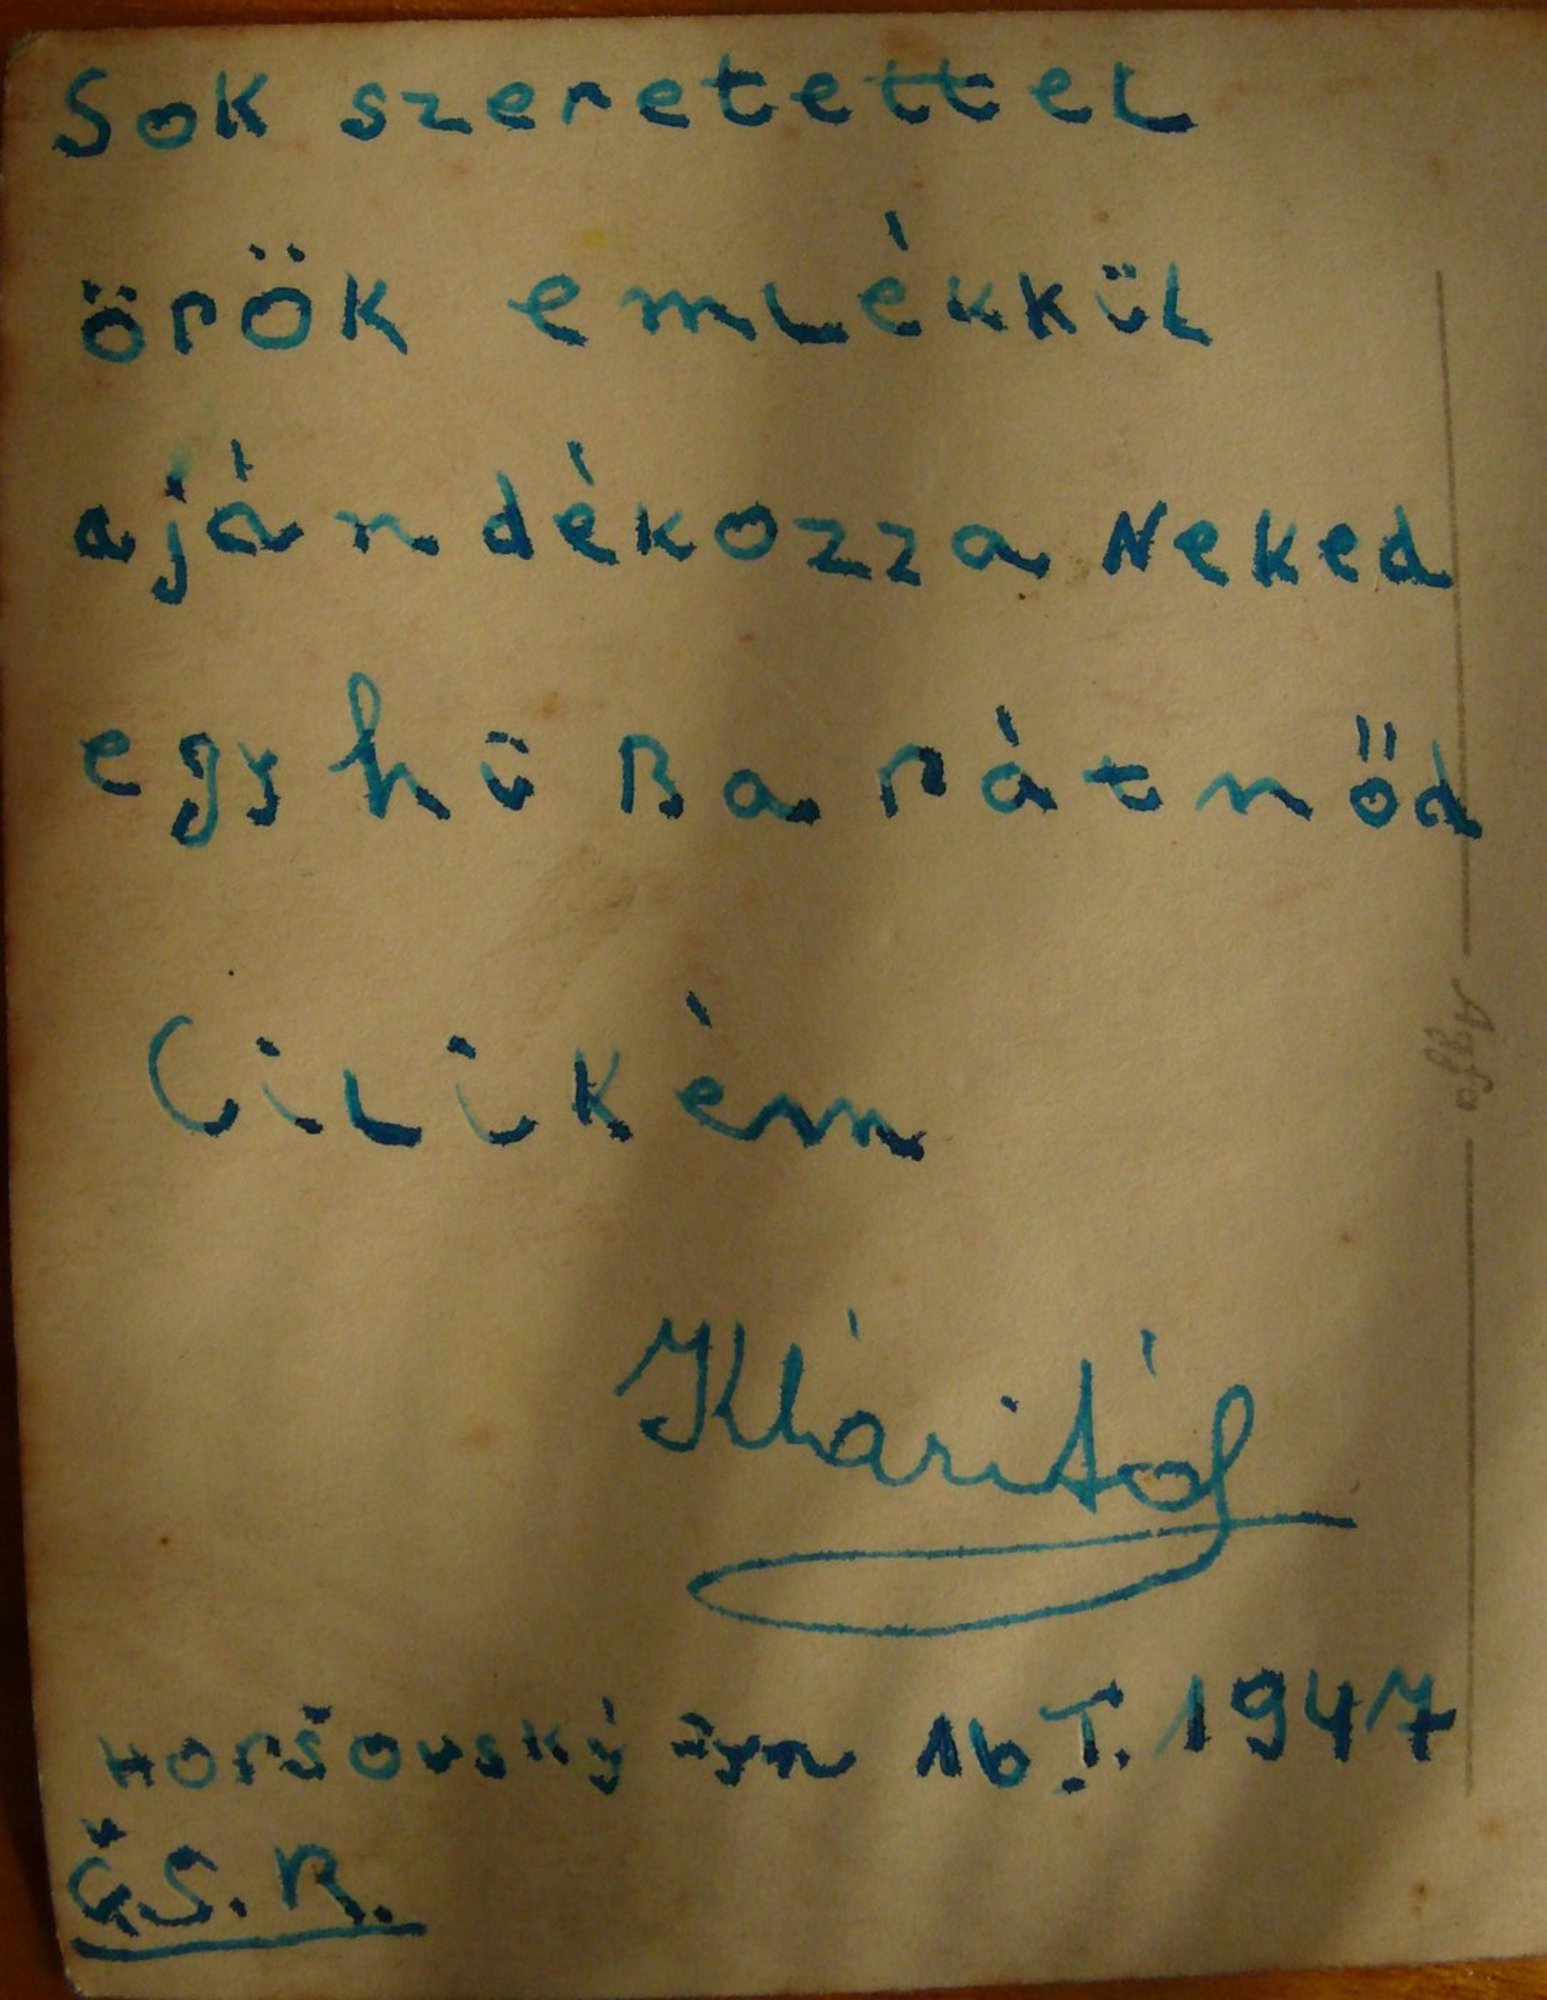 Sok szeretettel
örök emlékkül
ajándékozza Neked
egy hü Barátnőd
Cilikém
Kláritól
Horšovský Tyn 16 I. 1947
Č.S.R.
Agfa